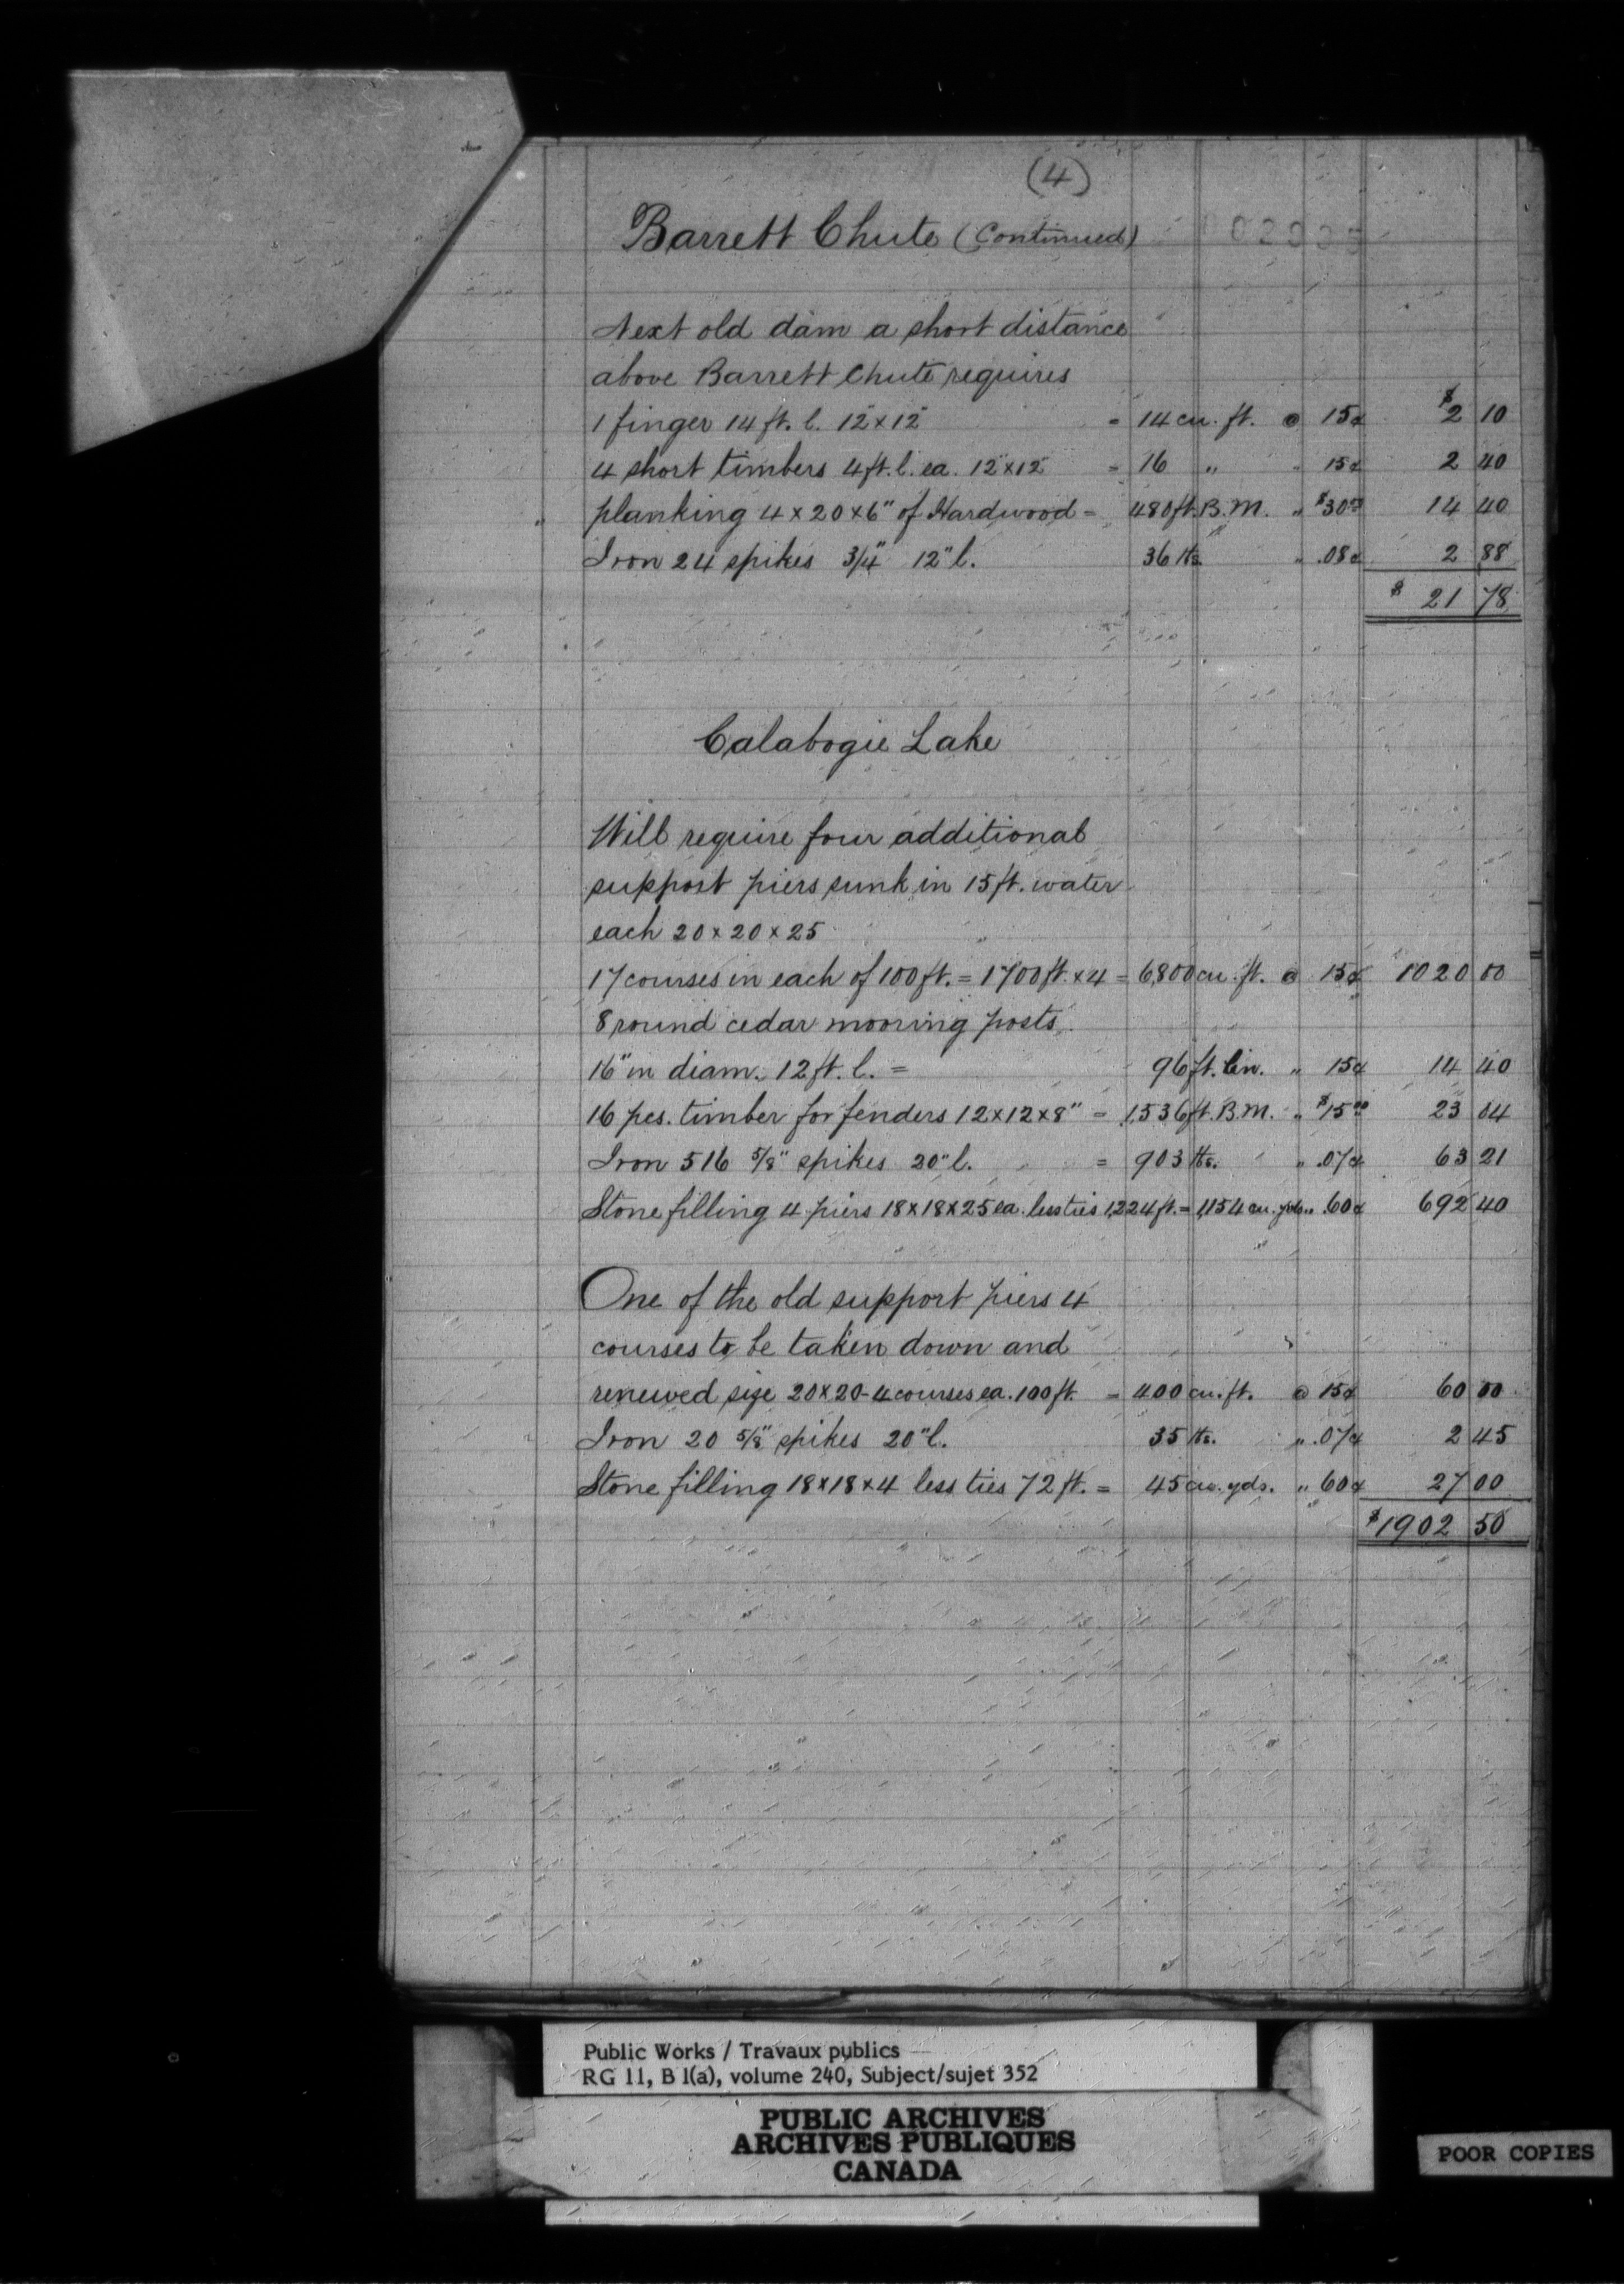 (4)
Barrett Chute (Continued)
Next old dam a short distance
above Barrett Chute requires
1 finger 14 ft. l. 12"x12" = 14 cu. ft. @ 15¢ $2 10
4 short timbers 4 ft. l. ea. 12"x12" = 16 " " 15¢ 2 40
" planking 4 x 20 x 6" of Hardwood = 480 ft. B.M. " $30.00 14 40
Iron 24 spikes 3/4" 12" l. 36 lbs. " .08¢ 2 88
$ 21 78
Calabogie Lake
Will require four additional
support piers sunk in 15 ft. water
each 20 x 20 x 25
17 courses in each of 100 ft. = 1700 ft. x 4 = 6,800 cu. ft. @ 15¢ 1020 00
8 round cedar mooring posts
16" in diam. 12 ft. l. = 96 ft. lin. " 15¢ 14 40
16 pcs. timber for fenders 12 x 12 x 8" = 1,536 ft. B.M. " $15.00 23 04
Iron 516 5/8" spikes 20" l. = 903 lbs. " .07¢ 63 21
Stone filling 4 piers 18 x 18 x 25 ea. less ties 1,224 ft. = 1,154 cu. yds. " .60¢ 692 40
One of the old support piers 4
courses to be taken down and
renewed size 20 x 20 - 4 courses ea. 100 ft. = 400 cu. ft. @ 15¢ 60 00
Iron 20 5/8" spikes 20" l. 35 lbs. " .07¢ 2 45
Stone filling 18 x 18 x 4 less ties 72 ft. = 45 cu. yds. " 60¢ 27 00
$1902 50
Public Works / Travaux publics
RG 11, B 1(a), volume 240, Subject/sujet 352
PUBLIC ARCHIVES
ARCHIVES PUBLIQUES
CANADA
POOR COPIES